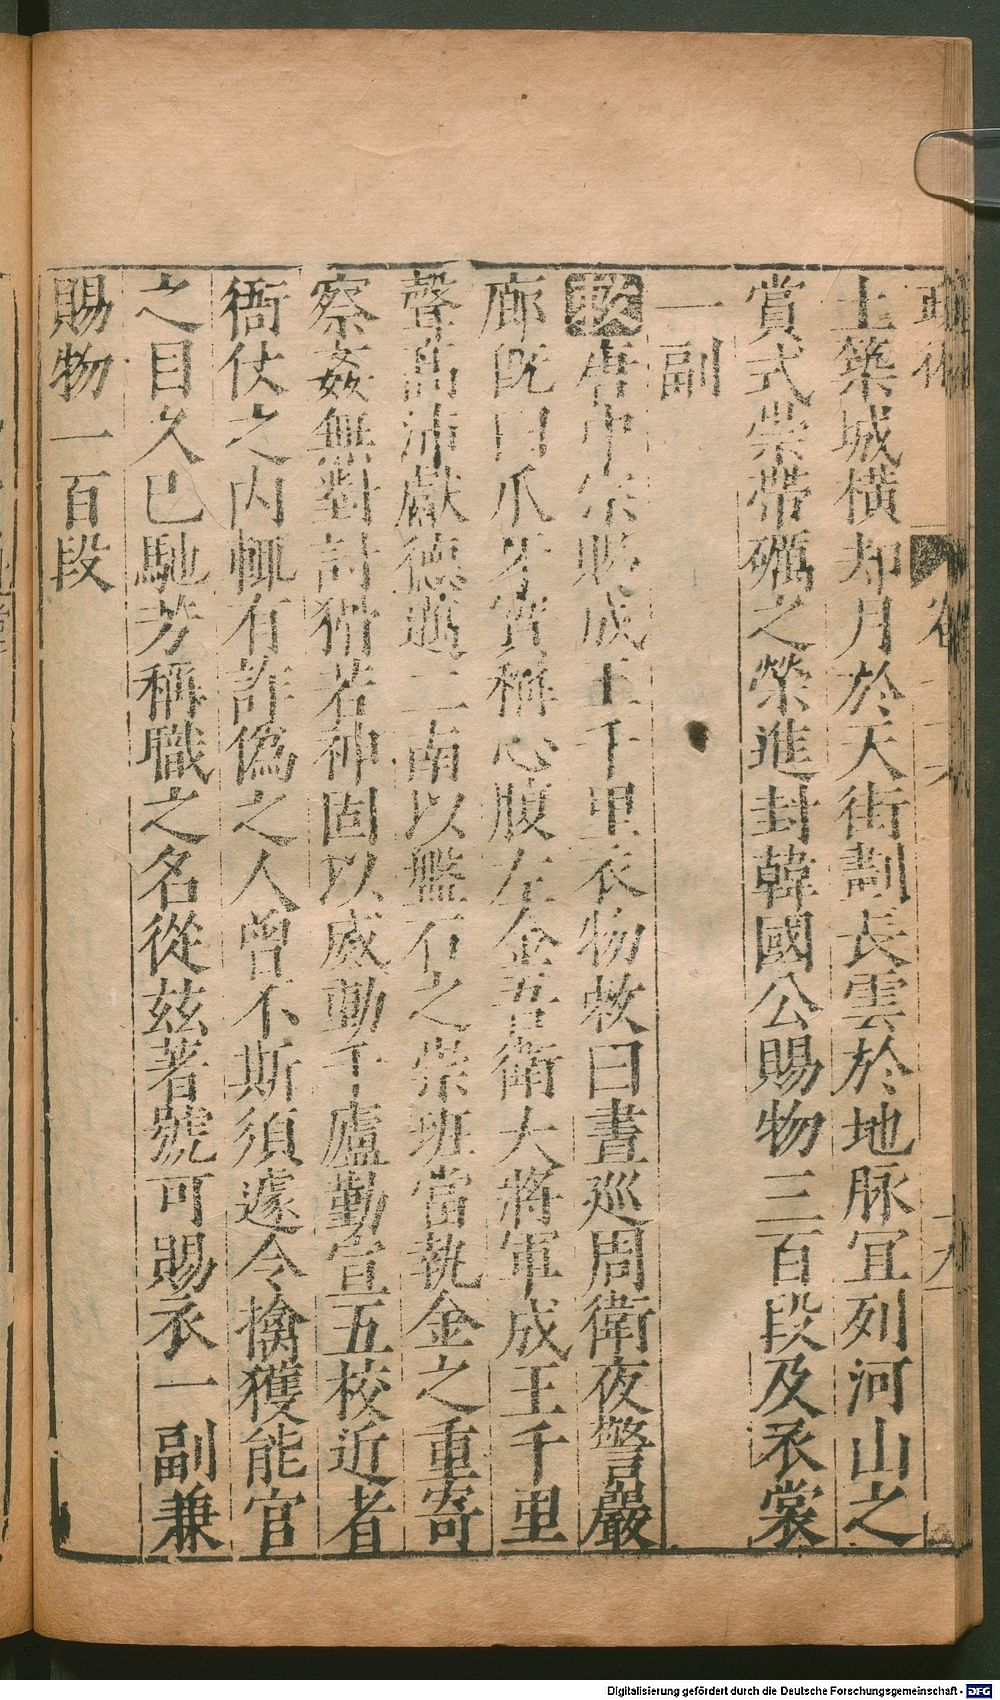 土築城橫却月於天街劃長雲於地脉宜列河山之
賞式崇帶礪之榮進封韓國公賜物三百段及衣裳
一副
敕唐中宗賜成王千里衣物敕曰晝巡周衛夜警嚴
廊旣曰爪牙實稱心腹左金吾衛大將軍成王千里
聲高沛獻德邁二南以盤石之崇班當執金之重寄
察姦無對討猾若神固以威動千廬勤宣五校近者
衙仗之内輒有詐偽之人曾不斯須遽令擒獲能官
之目久已馳芳稱職之名從兹著號可賜衣一副兼
賜物一百段
Digitalisierung gefördert durch die Deutsche Forschungsgemeinschaft - DFG